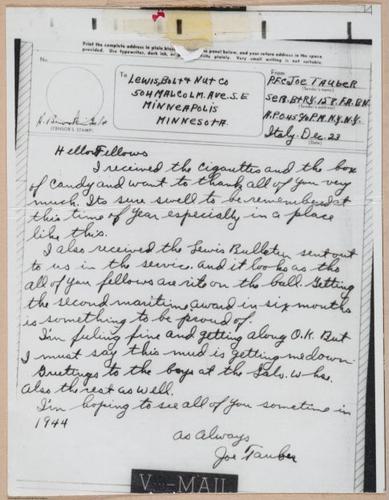 Print the complete address in plain block letters in the panel below, and your return address in the space
provided. Use typewriter, dark ink, or pencil. Write plainly. Very small writing is not suitable.
No.
(CENSOR'S STAMP)
To
LEWIS, BOLT & NUT CO
504 MALCOLM. AVE. S.E
MINNEAPOLIS
MINNESOTA.
From
PFC. JOE TAUBER
(Sender's name)
SER. BTRY. 158. F.A. BN.
(Sender's address)
A.P.O. 45 c/o P.M. N.Y. N.Y.
Italy. Dec. 23
(Date)
Hello Fellows
I received the cigarettes and the box
of candy and want to thank all of you very
much. Its sure swell to be remembered at
this time of year especially in a place
like this.
I also received the Lewis Bulletin sent out
to us in the service. and it looks as tho
all of you fellows are rite on the ball. Getting
the second maritime award in six months
is something to be proud of.
I'm feeling fine and getting along O.K. But
I must say this mud is getting me down.
Greetings to the boys at the Galv. Whse.
Also the rest as well.
I'm hoping to see all of you sometime in
1944
As Always
Joe Tauber
V-MAIL